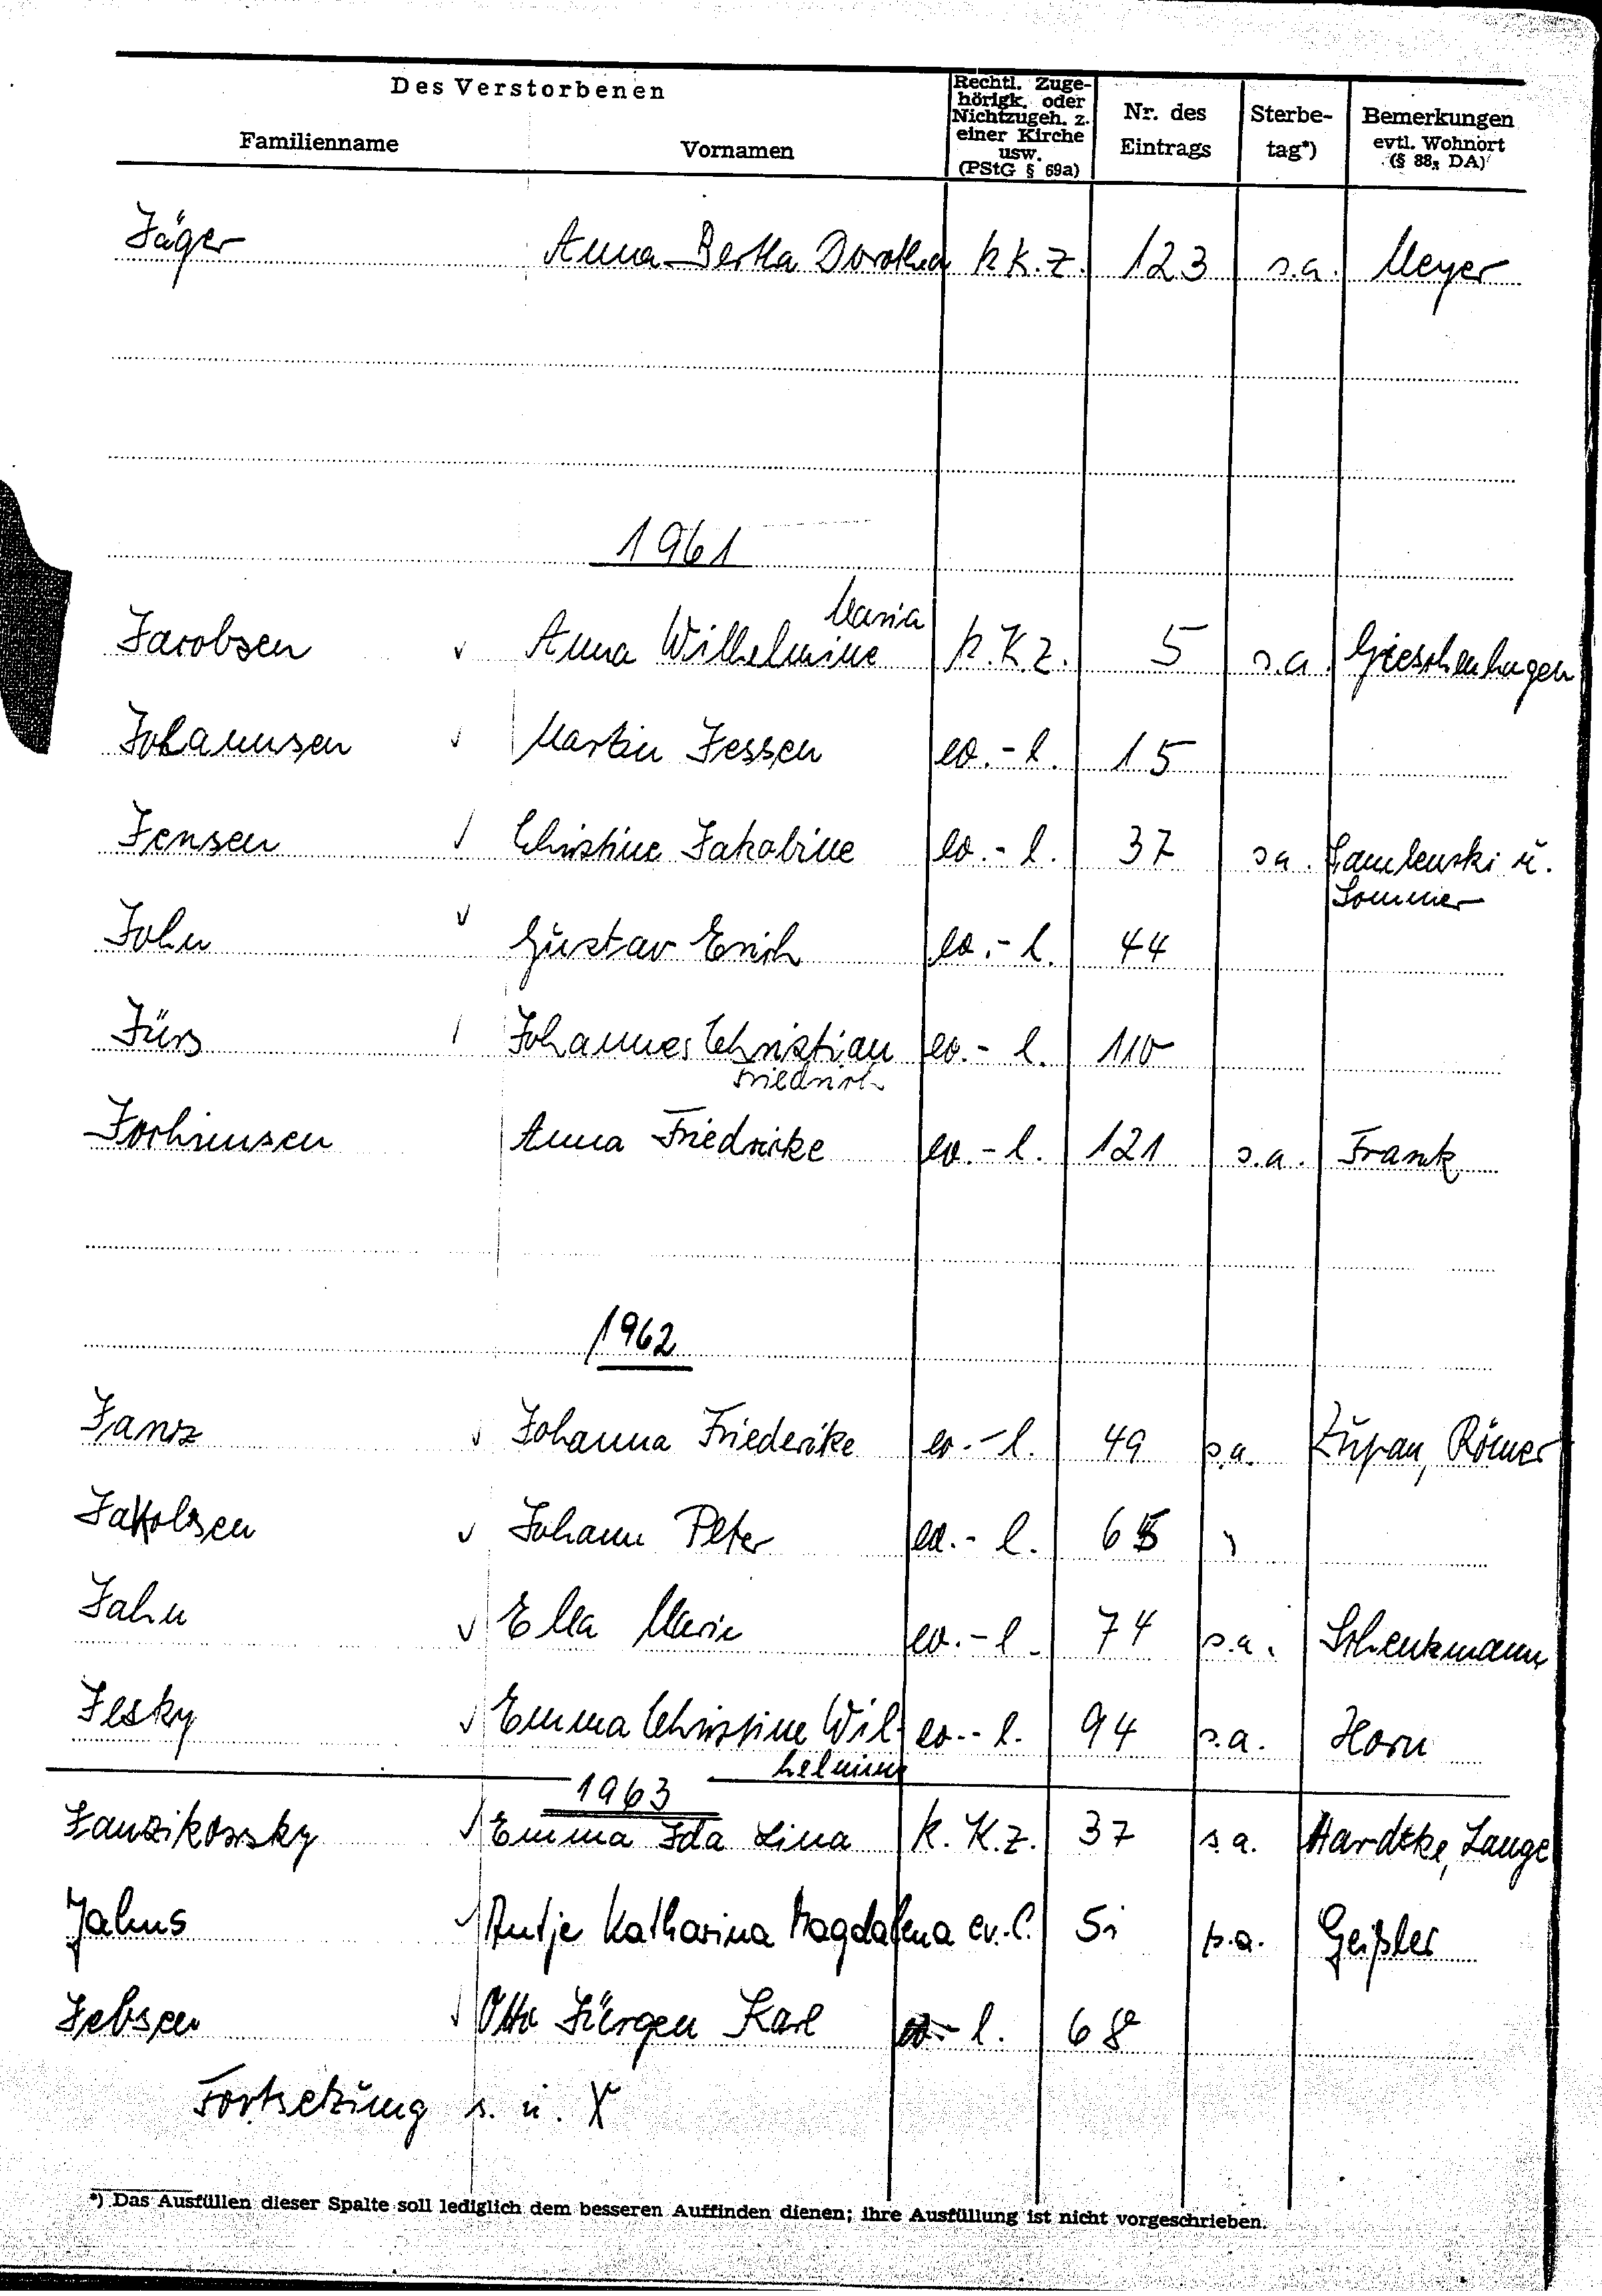 Des Verstorbenen
Familienname
Vornamen
Rechtl. Zuge-
hörigk. oder
Nichtzugeh. z.
einer Kirche
usw.
(PStG § 69a)
Nr. des
Eintrags
Sterbe-
tag*)
Bemerkungen
evtl. Wohnort
(§ 88, DA)
Jäger Anna Berta Dorothea k K. Z. 123 s.a. Meyer
1961
Maria
Jacobsen Anna Wilhelmine k. K Z. 5 s.a. Gieschenhagen
Johannsen Martin Jessen ev.-l. 15
Jensen Christine Jakobine ev.-l. 37 s a. u.
Sommer
John Gustav Erich ev.-l. 44
Jürs Johannes Christian ev.-l. 110
Friedrich
Jochimsen Anna Friedricke ev.-l. 121 s.a. Frank
1962
Janz Johanna Friederike ev.-l. 49 s.a. Župan, Römer
Jakobsen Johann Peter ev.-l. 65
Jahn Ella Marie ev.-l. 74 s.a. Schenkmann
Jesky Emma Christine Wil- ev.-l. 94 s.a. Horn
helmine
1963
Janzikowsky Emma Ida Lina k. K.z. 37 s.a. Hardtke, Lange
Jahns Antje Katharina Magdalena ev.-l. 51 s.a. Geißler
Jebsen Otto Jürgen Karl ev.-l. 68
Fortsetzung s. u. X
*) Das Ausfüllen dieser Spalte soll lediglich dem besseren Auffinden dienen; ihre Ausfüllung ist nicht vorgeschrieben.